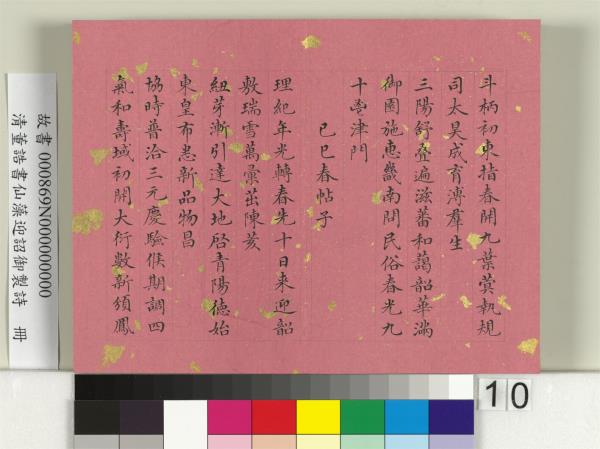 斗柄初東指春開九葉蓂執規
司太昊成育溥羣生
三陽舒叠遍滋蕃和藹韶華滿
御園施惠畿南閱民俗春光九
十啓津門
己巳春帖子
理紀年光轉春先十日來迎韶
敷瑞雪萬彙茁陳荄
紐芽漸引達大地啓青陽德始
東皇布恵新品物昌
協時普洽三元慶驗候期調四
氣和壽域初開大衍數新頒鳳
故書 000869N000000000
清董誥書仙藻迎詔御製詩 冊
10